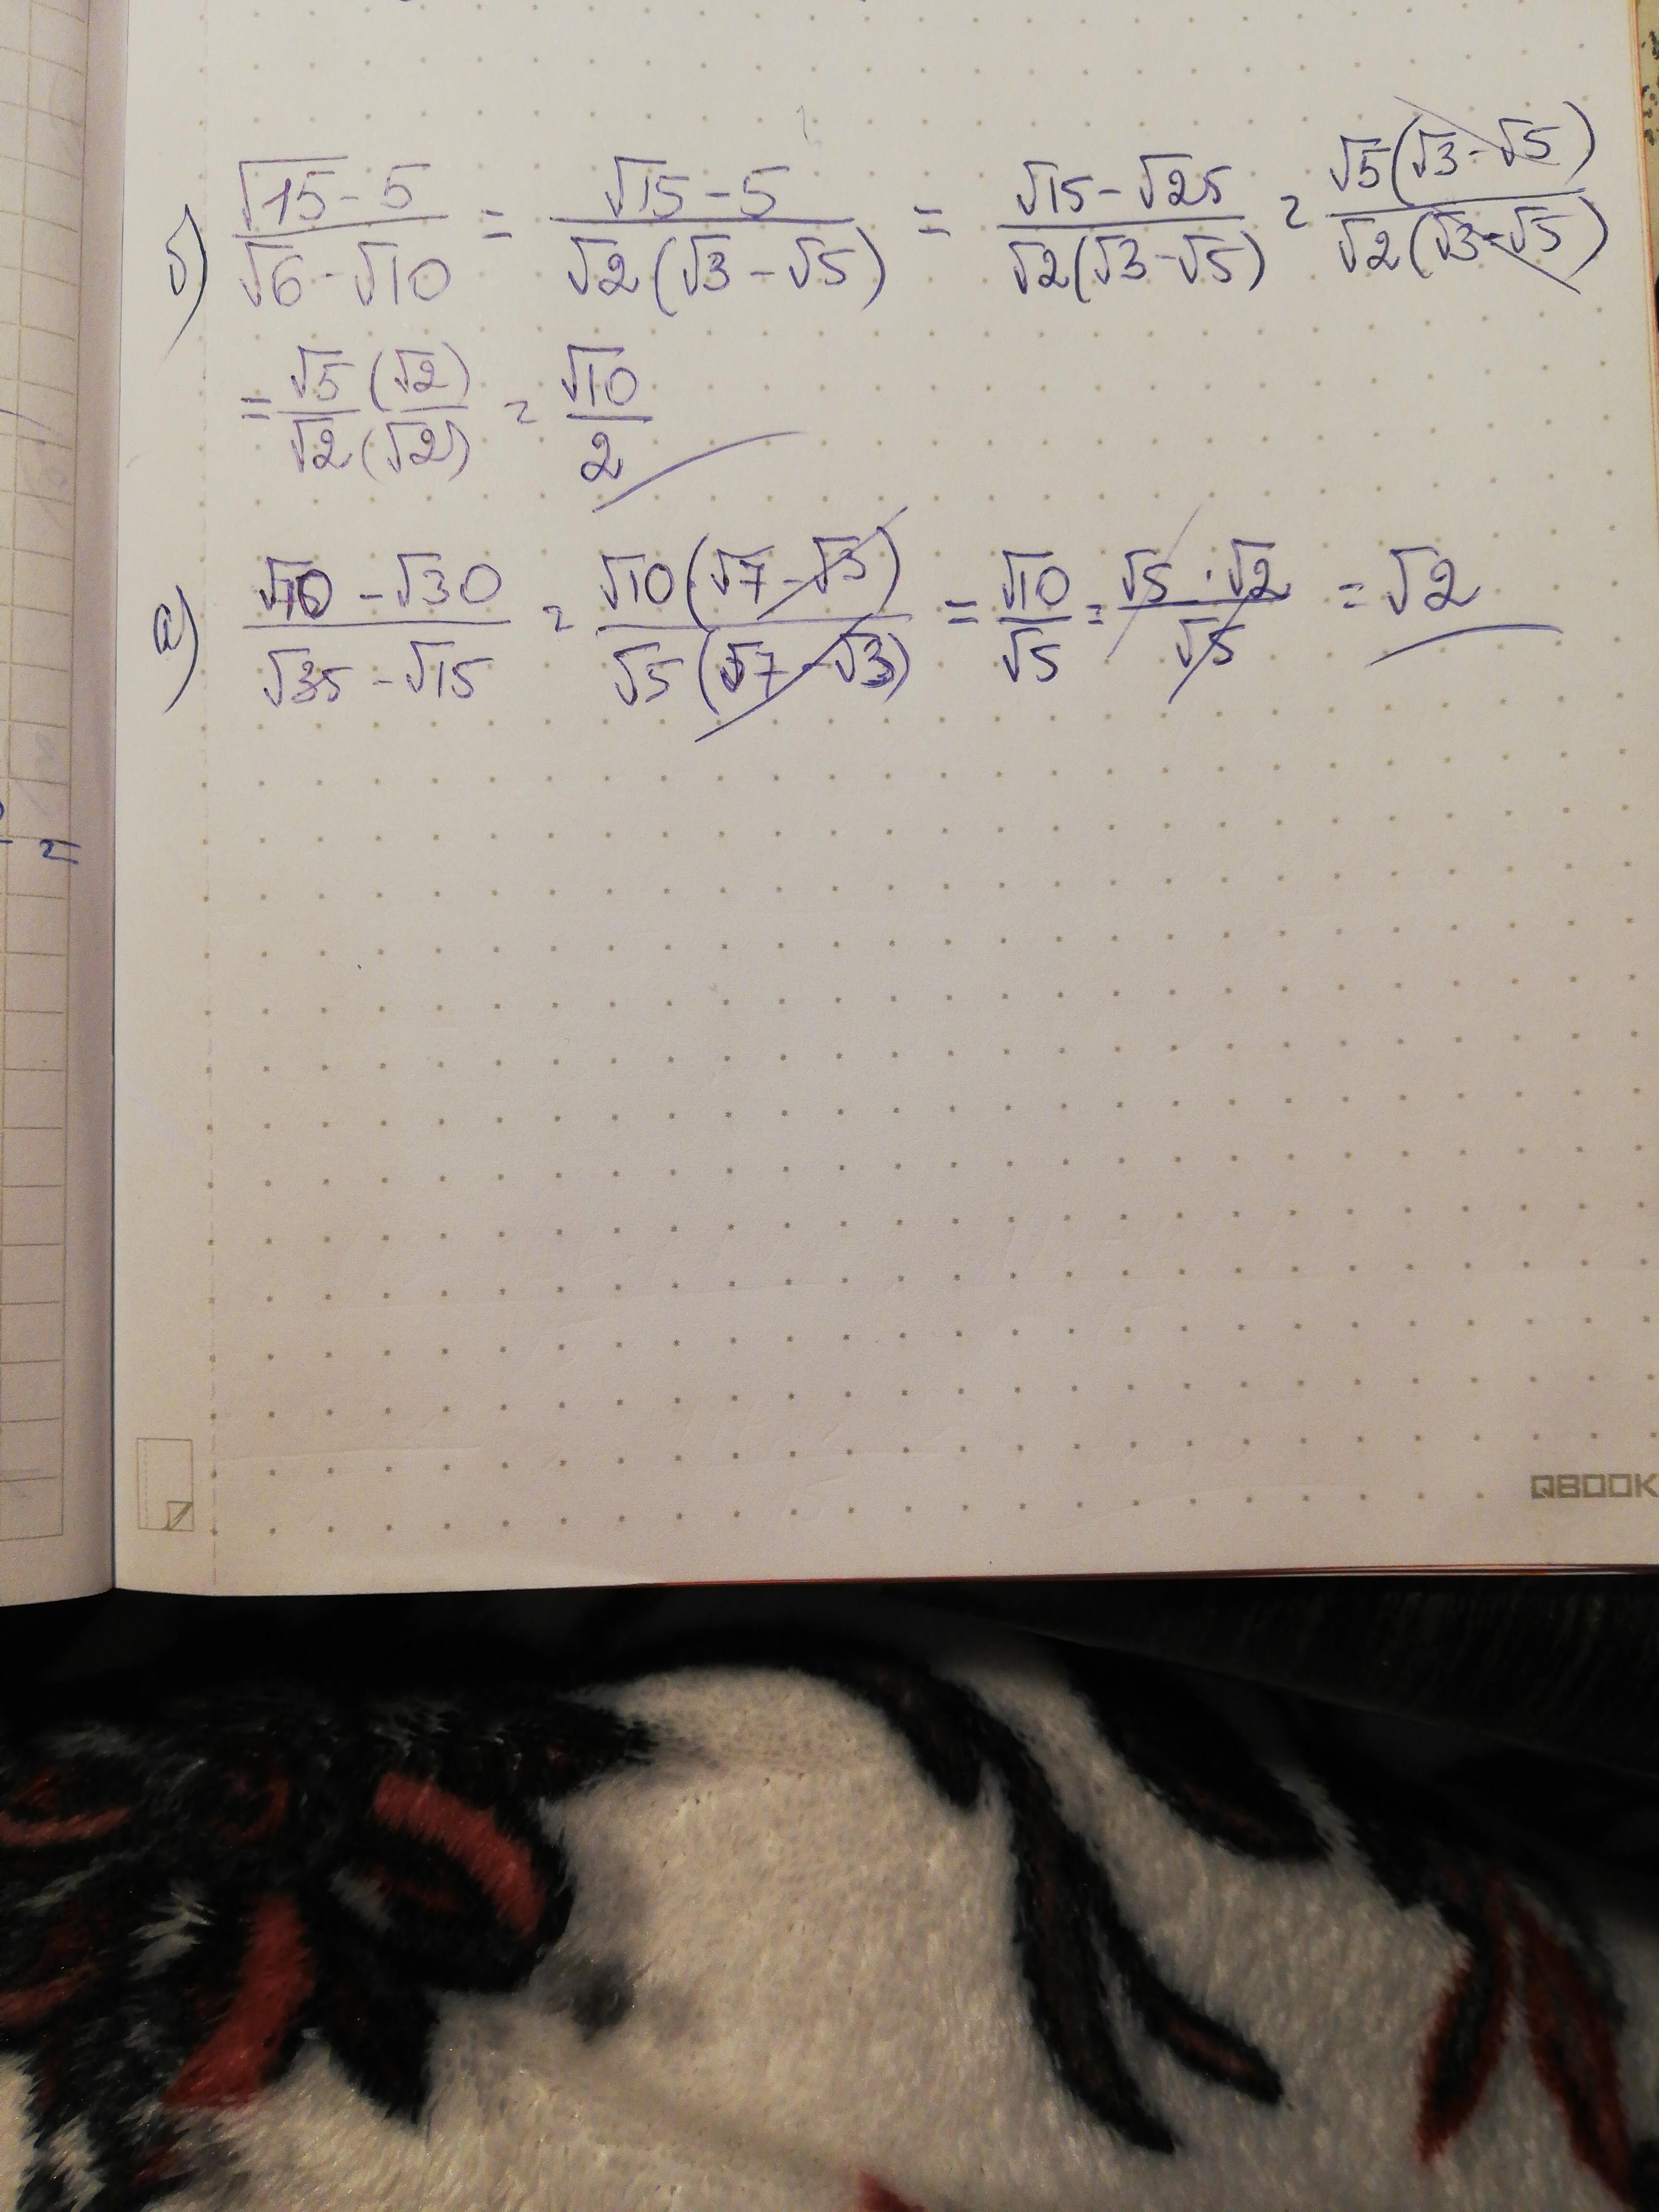 б) √15 - 5 / √6 - √10 = √15 - 5 / √2(√3 - √5) = √15 - √25 / √2(√3 - √5) = √5(√3 - √5) / √2(√3 - √5)
= √5(√2) / √2(√2) = √10 / 2
а) √10 - √30 / √35 - √15 = √10(√7 - √3) / √5(√7 - √3) = √10 / √5 = √5 · √2 / √5 = √2
QBOOK